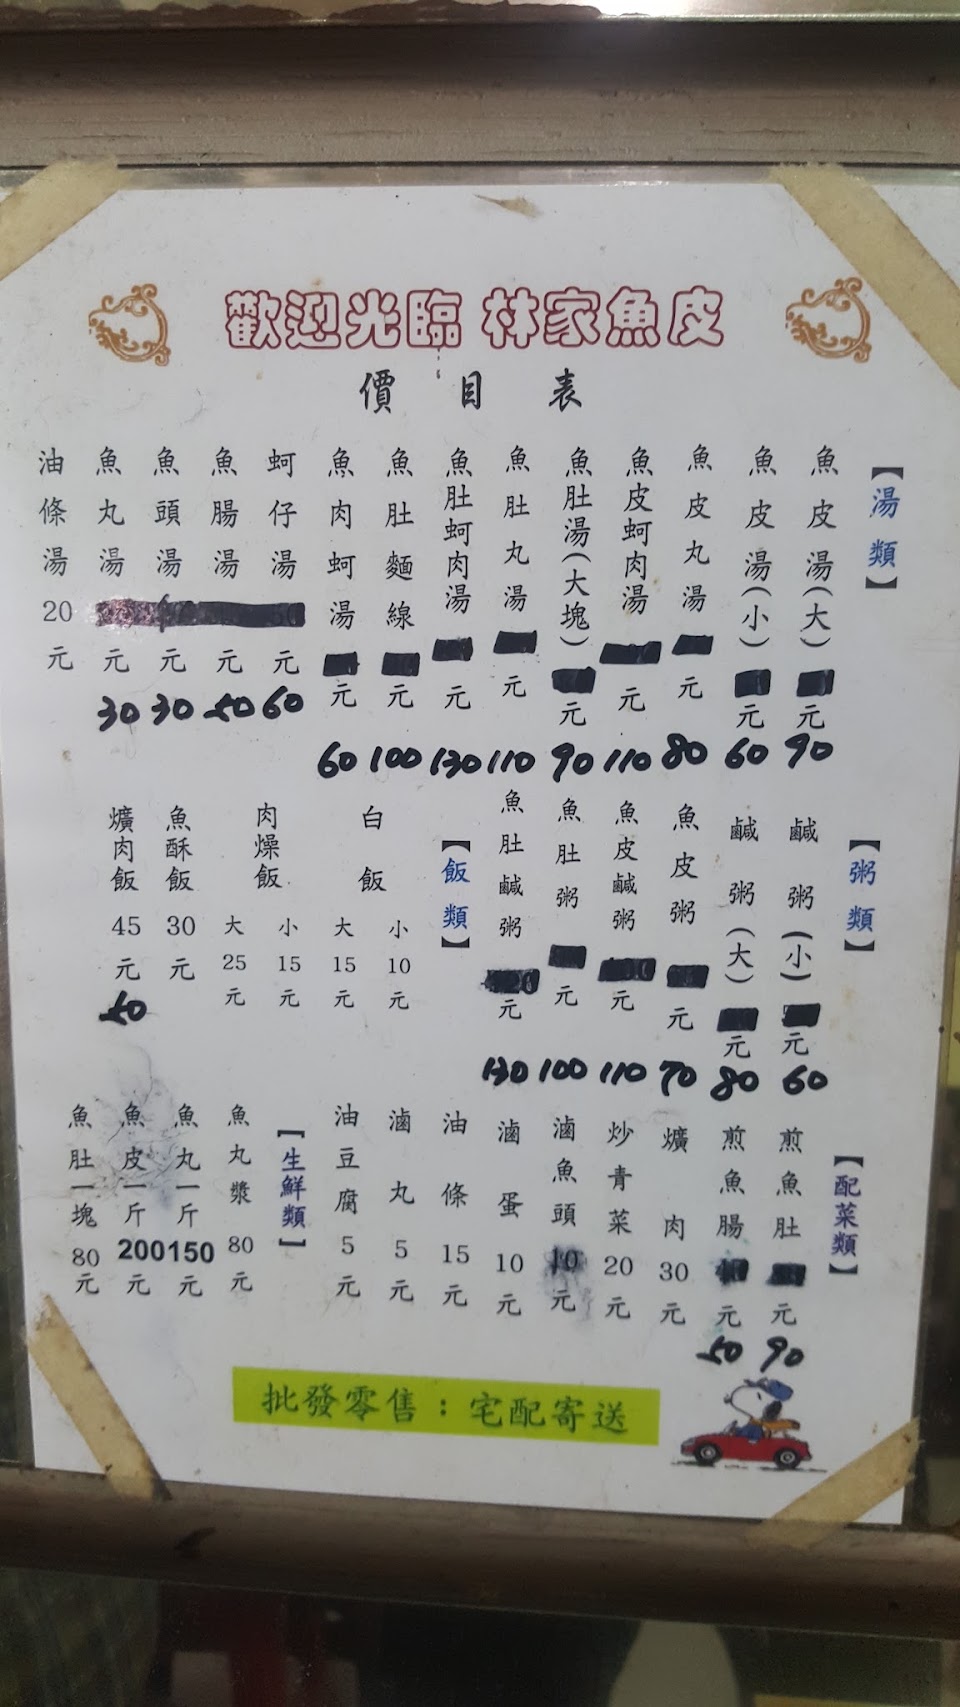 歡迎光臨 林家魚皮
價目表
【湯類】
魚皮湯(大) 元 90
魚皮湯(小) 元 60
魚皮丸湯 元 80
魚皮蚵肉湯 元 110
魚肚湯(大塊) 元 90
魚肚丸湯 元 110
魚肚蚵肉湯 元 130
魚肚麵線 元 100
魚肉蚵湯 元 60
蚵仔湯 元 60
魚腸湯 元 50
魚頭湯 元 30
魚丸湯 元 30
油條湯 20元
【粥類】
鹹粥(小) 元 60
鹹粥(大) 元 80
魚皮粥 元 70
魚皮鹹粥 元 110
魚肚粥 元 100
魚肚鹹粥 元 130
【飯類】
白飯 小10元 大15元
肉燥飯 小15元 大25元
魚酥飯 30元
爌肉飯 45元 50
【配菜類】
煎魚肚 元 90
煎魚腸 元 50
爌肉 30元
炒青菜 20元
滷魚頭 10元
滷蛋 10元
油條 15元
滷丸 5元
油豆腐 5元
【生鮮類】
魚丸漿 80元
魚丸一斤 150元
魚皮一斤 200元
魚肚一塊 80元
批發零售：宅配寄送